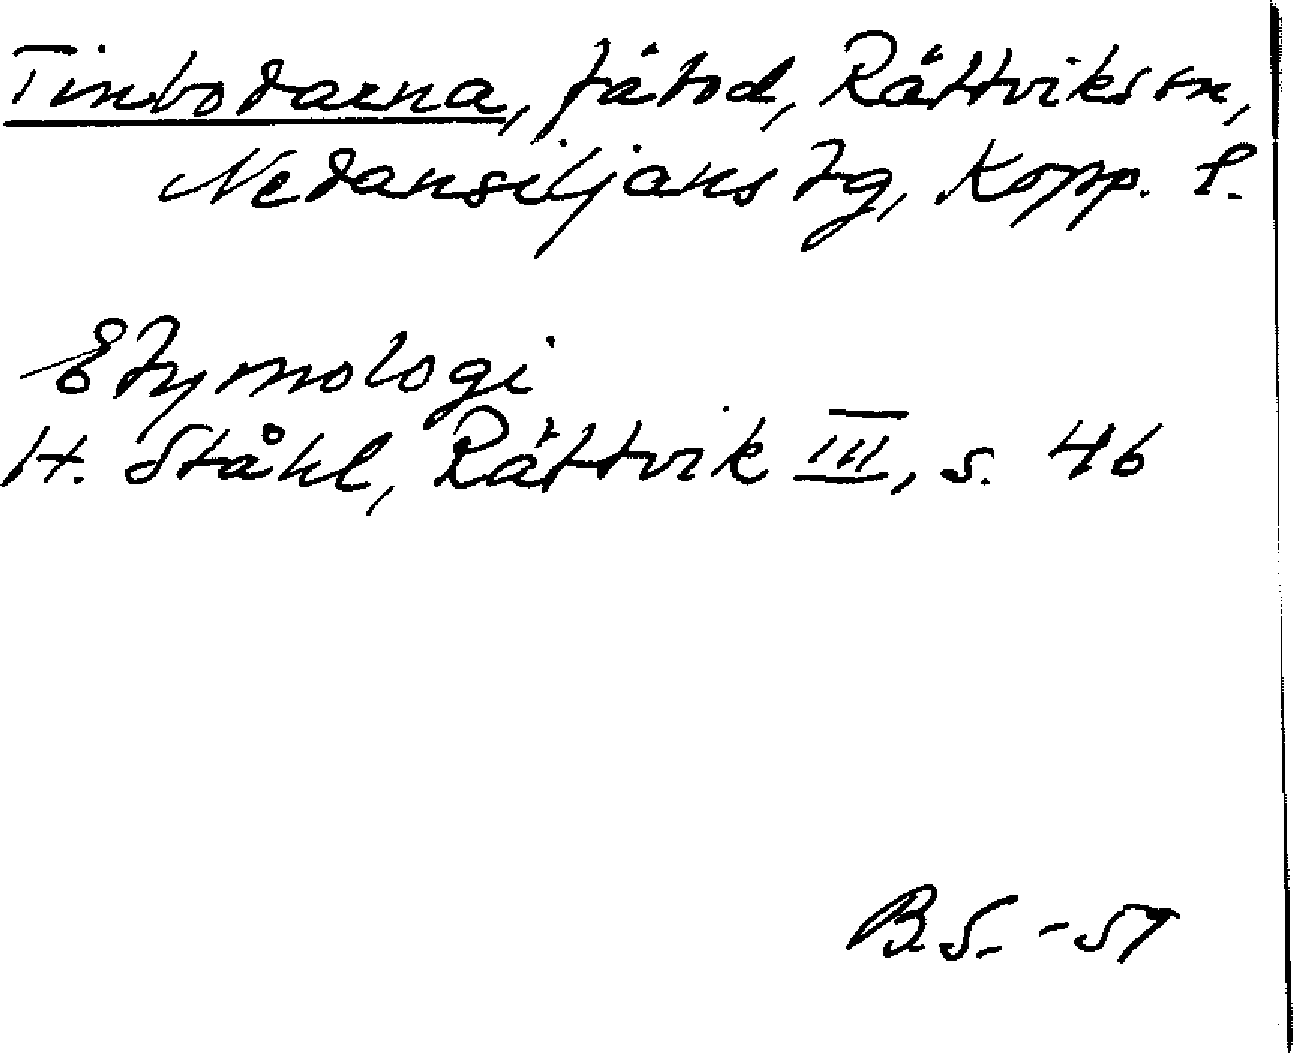 Timbodarna, fäbod, Rättviks sn,
Nedansiljans tg, Kopp. l.
Etymologi
H. Ståhl, Rättvik III, s. 46
B.S. -57